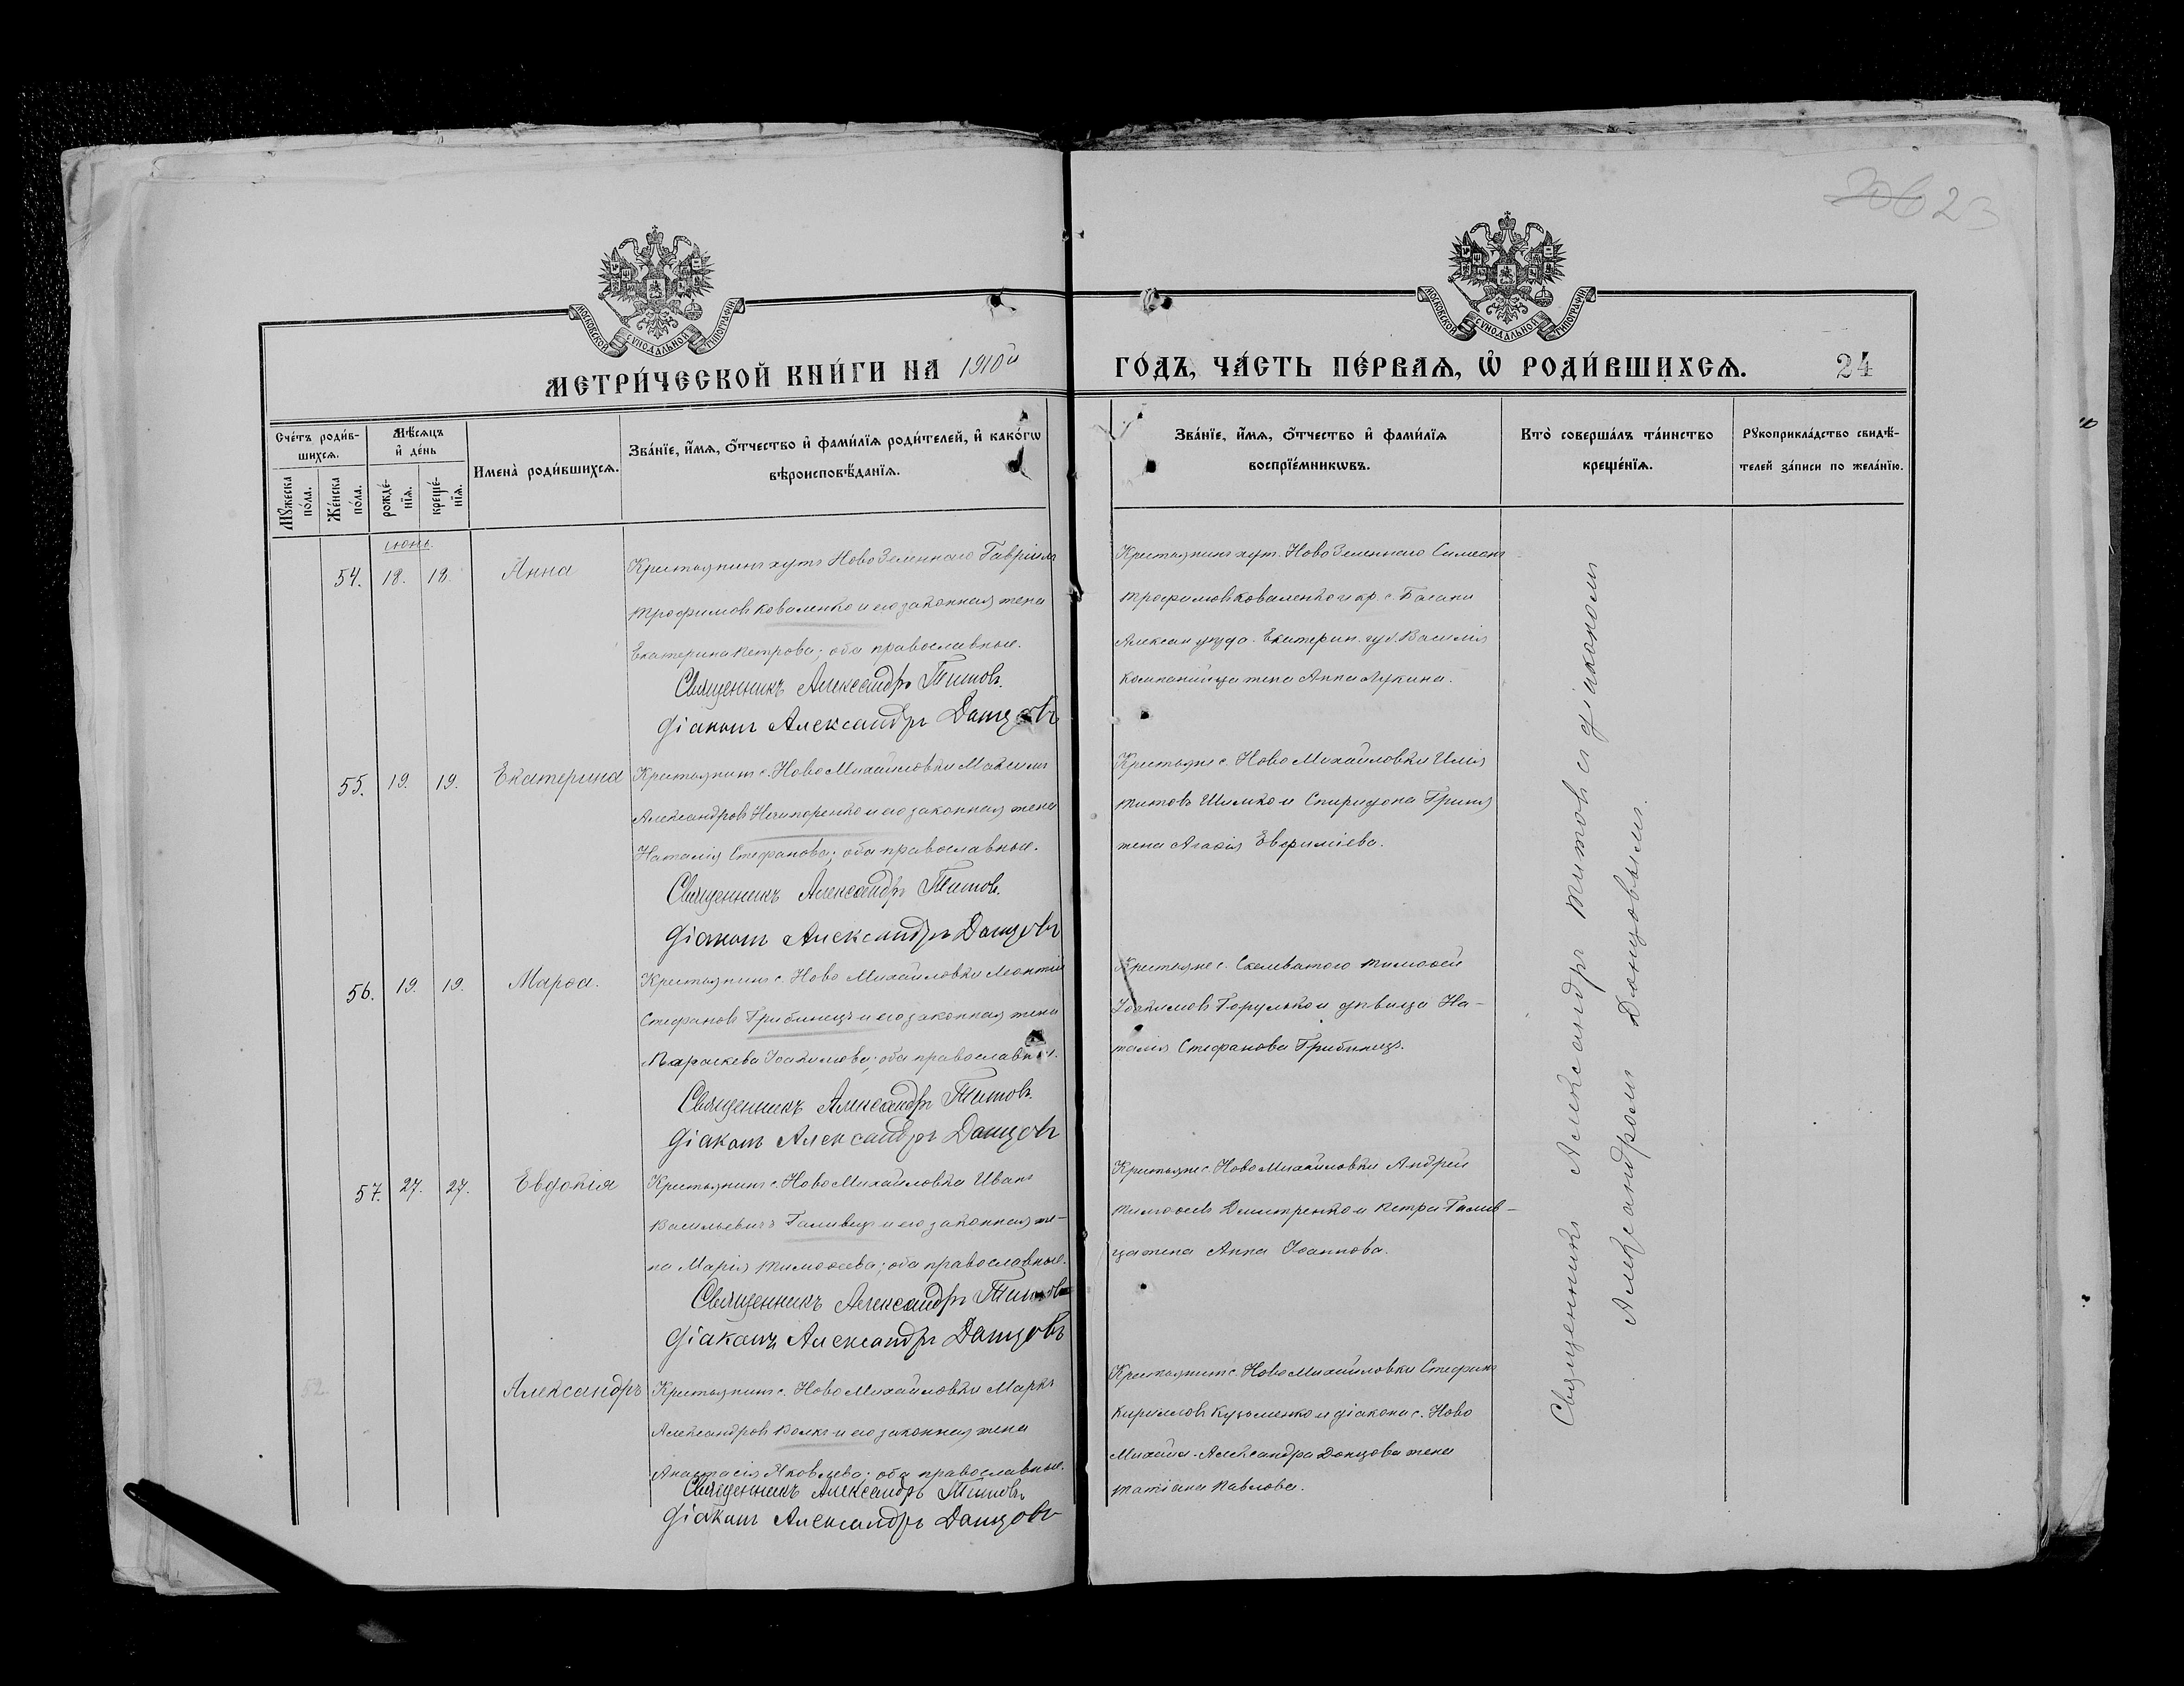 20 6 23
МОСКОВСКОЙ СѴНОДАЛЬНОЙ ТИПОГРАФІИ
МОСКОВСКОЙ СѴНОДАЛЬНОЙ ТИПОГРАФІИ
МЕТРИ́ЧЕСКОЙ КНИ́ГИ НА 1910й ГО́ДЪ, ЧА́СТЬ ПЕ́РВАѦ, Ѡ҆ РОДИ́ВШИХСѦ. 24
Сче́тъ роди́в-
шихсѧ.
Мꙋ́жеска по́ла.
Же́нска по́ла.
Мѣ́сѧцъ и҆ де́нь
рожде́-
нїѧ.
креще́-
нїѧ.
Имена̀ роди́вшихсѧ.
Зва́нїе, и҆́мѧ, ѻ҆́тчество и҆ фами́лїѧ роди́телей, и҆ како́гѡ
вѣроисповѣ́данїѧ.
Зва́нїе, и҆́мѧ, ѻ҆́тчество и҆ фами́лїѧ
воспрїе́мникѡвъ.
Кто̀ соверша́лъ та́инство
креще́нїѧ.
Рꙋкоприкла́дство свидѣ́-
телей за́писи по жела́нїю.
Іюнь.
54. 18. 18. Анна
Крестьянинъ хут. Ново Зеленнаго Гавріилъ
Трофимовъ Коваленко и его законная жена
Екатерина Петрова; оба православные.
Священникъ Александръ Титовъ.
Діаконъ Александръ Донцовъ
Крестьянинъ хут. Ново Зеленнаго Симеонъ
Трофимовъ Коваленко и кр. с. Басани
Александ. уезда. Екатерин. губ. Василія
Компанийца жена Анна Лукина.
55. 19. 19. Екатерина
Крестьянинъ с. Ново Михайловки Максимъ
Александровъ Нечипоренко и его законная жена
Наталія Стефанова; оба православные.
Священникъ Александръ Титовъ.
Діаконъ Александръ Донцовъ
Крестьяне с. Ново Михайловки Илія
Титовъ Шилко и Спиридона Гриня
жена Агаѳія Евфиміева.
56. 19. 19. Марѳа.
Крестьянинъ с. Ново Михайловки Леонтій
Стефановъ Грибинецъ и его законная жена
Параскева Іоакимова; оба православные.
Священникъ Александръ Титовъ.
Діаконъ Александръ Донцовъ
Крестьяне с. Скелеватого Тимоѳей
Іоакимовъ Горулько и девица На-
талія Стефанова Грибинецъ.
57. 27. 27. Евдокія
Крестьянинъ с. Ново Михайловки Иванъ
Васильевичъ Галивец и его законная же-
на Марія Тимоѳеева; оба православные.
Священникъ Александръ Титовъ
Діаконъ Александръ Донцовъ
Крестьяне с. Ново Михайловки Андрей
Тимоѳеевъ Дмитренко и Петра Галив-
ца жена Анна Іоаннова.
52. Александръ
Крестьянинъ с. Ново Михайловки Маркъ
Александровъ Волкъ и его законная жена
Анастасія Яковлева; оба православные.
Священникъ Александръ Титовъ
Діаконъ Александръ Донцовъ
Крестьянинъ с. Ново Михайловки Стефанъ
Кирилловъ Кузьменко и діакона с. Ново
Михайл. Александра Донцова жена
Татіана Павлова.
Священникъ Александръ Титовъ съ діакономъ
Александромъ Донцовымъ.